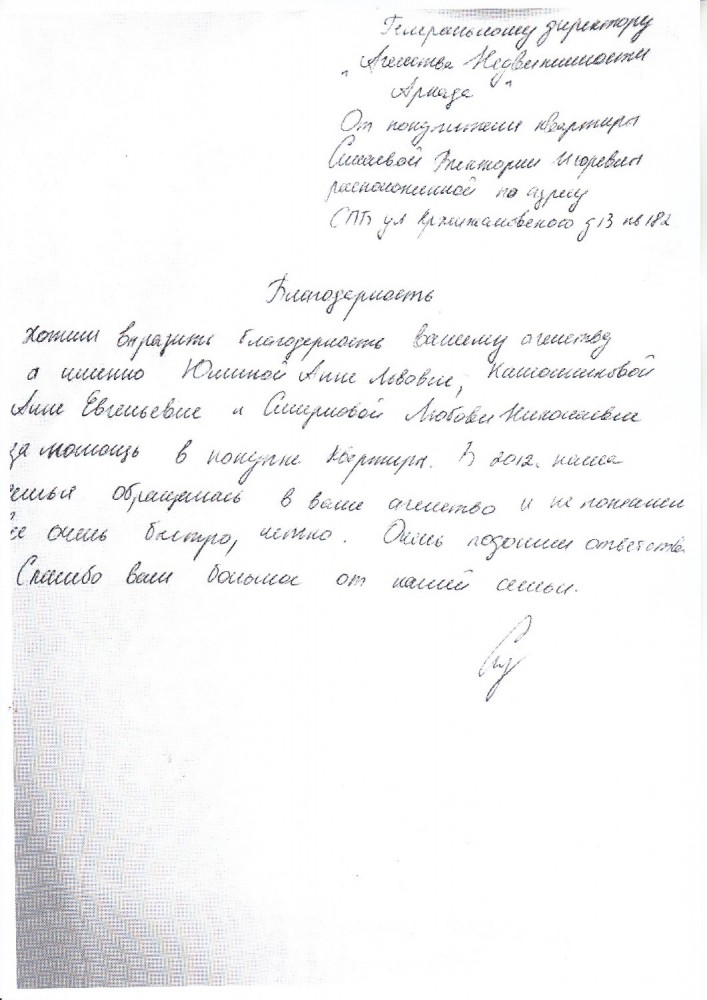 Генеральному директору
"Агенства Недвижимости
Ариада"
От покупателя квартиры
Виктории Игоревны
расположенной по адресу
СПБ ул Кржижановского д 13 кв 182
Благодарность
Хотим выразить благодарность вашему агенству
а именно Юлиной Анне Львовне,
Анне Евгеньевне и Смирновой Любови Николаевне
за помощь в покупке квартиры. В 2012. наша
семья обращалась в ваше агенство и не пожалели
все очень быстро, четко. Очень подошли ответстве
Спасибо вам большое от нашей семьи.